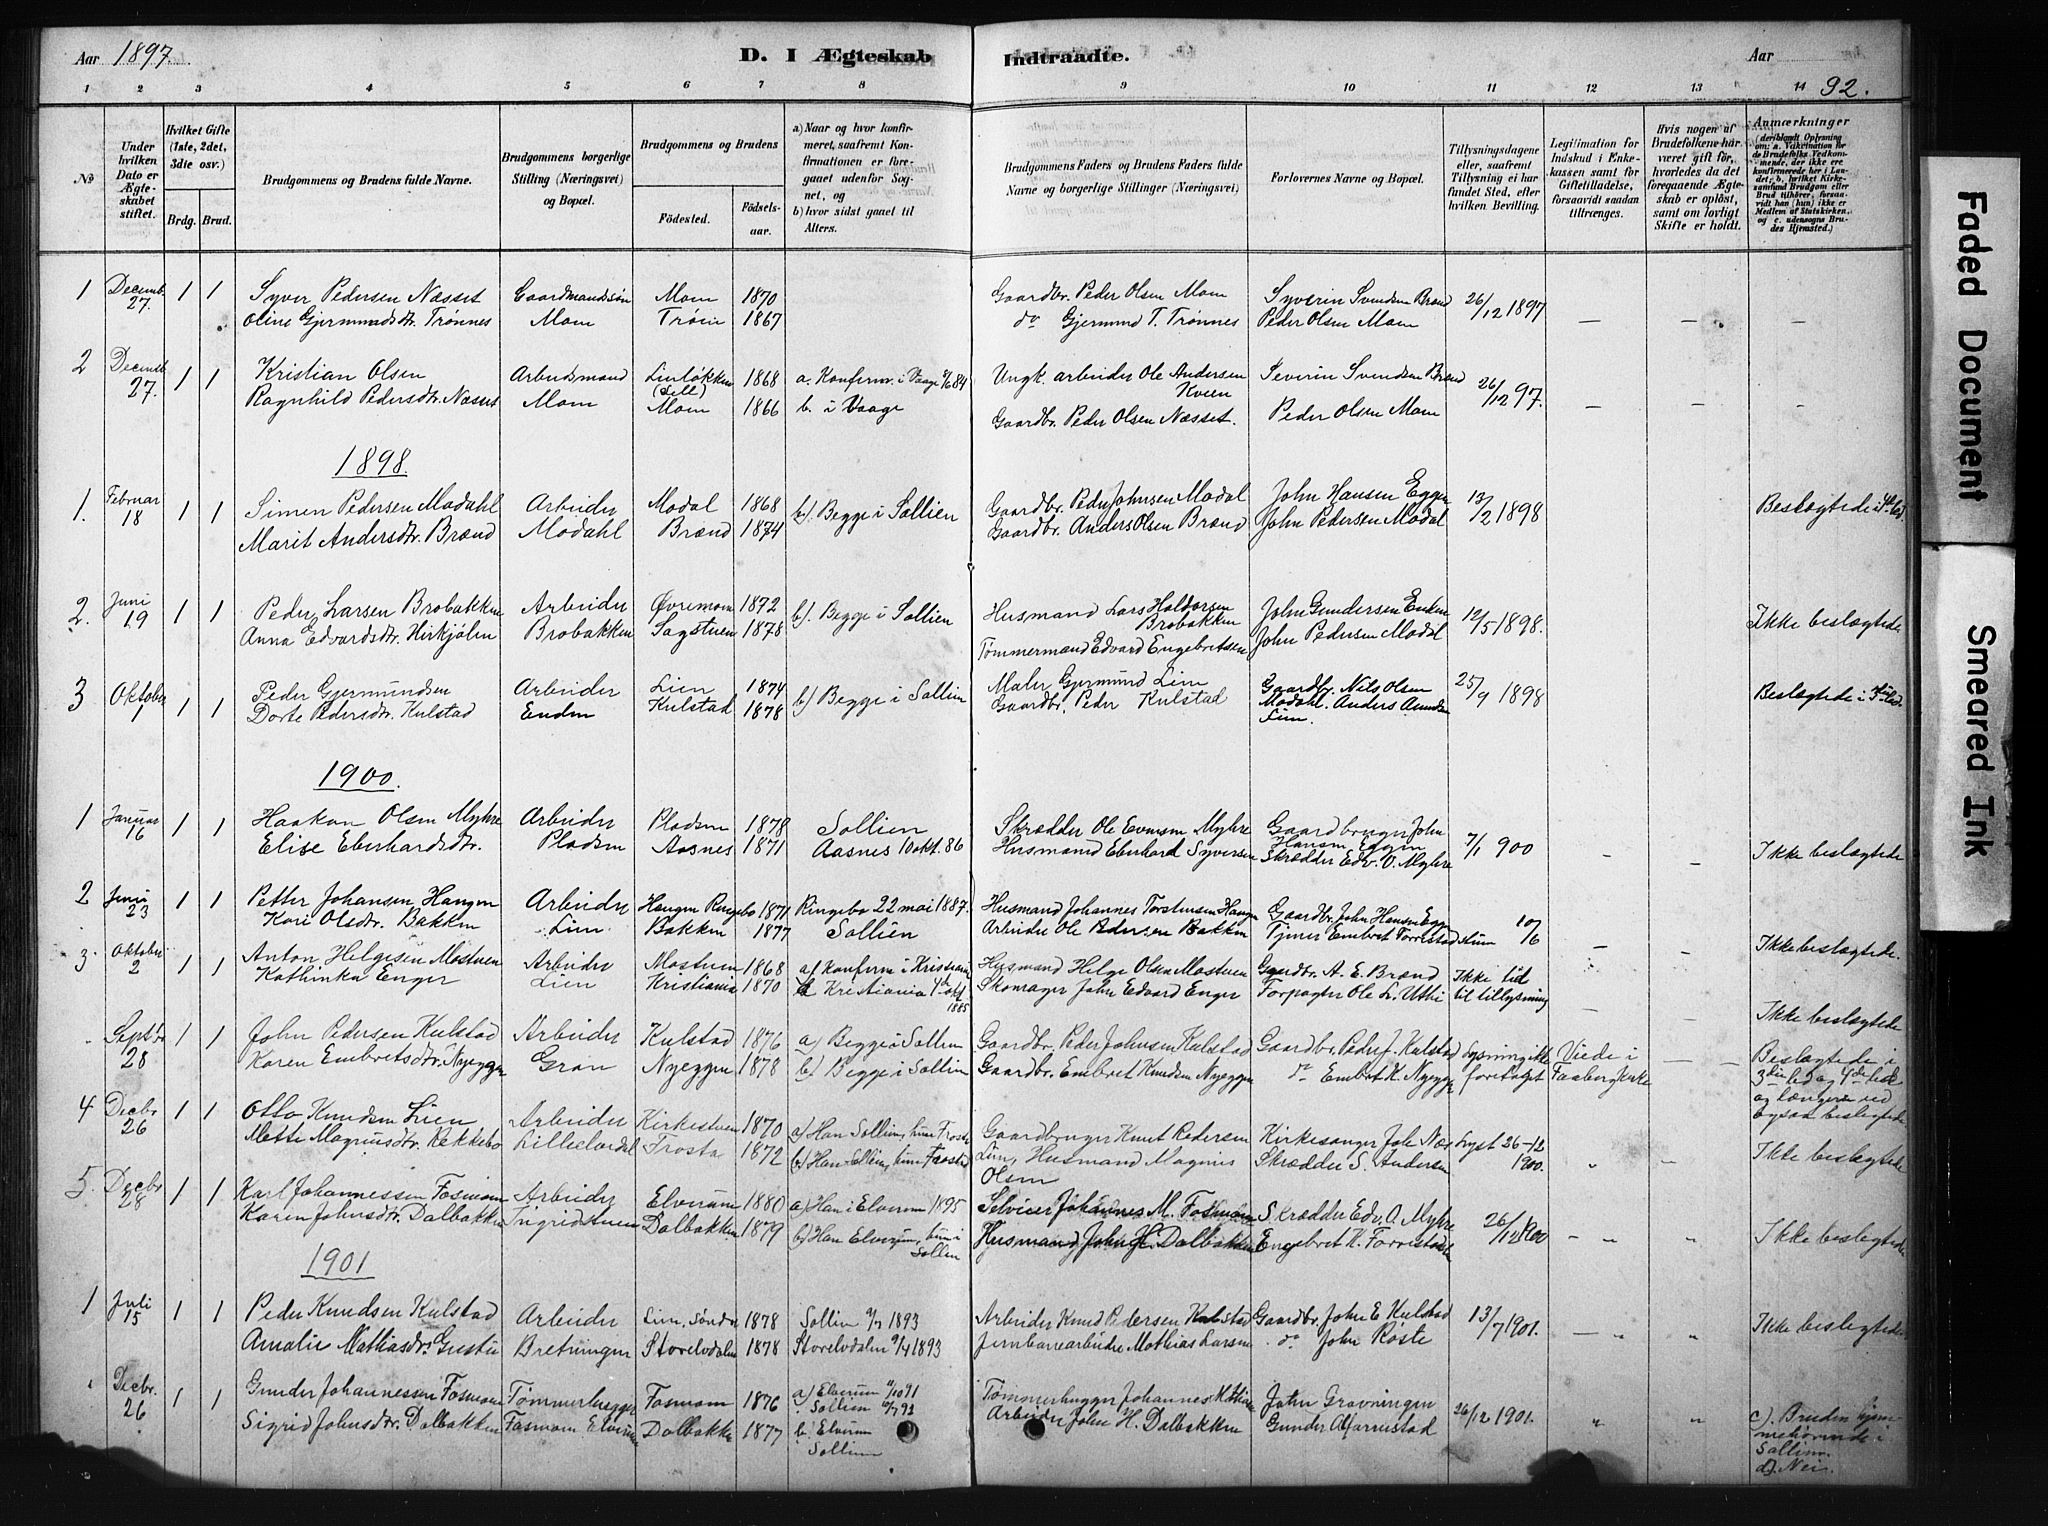 Aar 1897.
D. I Ægteskab Indtraadte.
Aar
92.
1 2 3 4 5 6 7 8 9 10 11 12 13 14
No
Under hvilken Dato er Ægteskabet stiftet.
Hvilket Gifte (1ste, 2det, 3die osv.)
Brdg. Brud.
Brudgommens og Brudens fulde Navne.
Brudgommens borgerlige Stilling (Næringsvei) og Bopæl.
Brudgommens og Brudens
Fødested. Fødselsaar.
a) Naar og hvor konfirmeret, saafremt Konfirmationen er foregaaet udenfor Sognet, og
b) hvor sidst gaaet til Alters.
Brudgommens Faders og Brudens Faders fulde Navne og borgerlige Stillinger (Næringsvei)
Forlovernes Navne og Bopæl.
Tillysningsdagene eller, saafremt Tillysning ei har fundet Sted, efter hvilken Bevilling.
Legitimation for Indskud i Enkekassen samt for Giftetilladelse, forsaavidt saadan tiltrænges.
Hvis nogen af Brudefolkene har været gift før, hvorledes da det foregaaende Ægteskab er opløst, samt om lovligt Skifte er holdt.
Anmærkninger (deriblandt Oplysning om: a. Vakcination for de Brudefolks Vedkommende, der ikke ere konfirmerede her i Landet; b. hvilket Kirkesamfund Brudgom eller Brud tilhører, forsaavidt han (hun) ikke er Medlem af Statskirken, og c. udensogns Brudes Hjemsted.)
1 Decemb. 27. 1 1 Syver Pedersen Næsset Gaardmandssøn Mom 1870 Gaardbr. Peder Olsen Mom Syverin Svendsen Brænd 26/12 1897 — — —
Oline Gjermundsdtr. Trønnes Mom Trøen 1867 do Gjermund T. Trønnes Peder Olsen Mom
2 Decemb 27. 1 1 Kristian Olsen Arbeidsmand 1868 a. Konfirm. i Vaage 84 Ungk. arbeider Ole Andersen Kveen Severin Svendsen Brænd 26/12 97. — — —
Ragnhild Pedersdtr. Næsset Mom Mom 1866 b. i Vaage Gaardbr. Peder Olsen Næsset. Peder Olsen Mom
1898.
1. Februar 18 1 1 Simen Pedersen Modahl Arbeider Modal 1868 b). Begge i Sollien Gaardbr. Peder Johnsen Modal John Hansen Eggen 13/2 1898 Beslægtede i
Marit Andersdtr. Brænd Modahl Brænd 1874 Gaardbr. Anders Olsen Brænd John Pedersen Modal
2. Juni 19 1 1 Peder Larsen Brobakken Arbeider Øvremoen 1872 b). Begge i Sollien Husmand Lars Haldorsen Brobakken John Gundersen Enden 12/5 1898. Ikke beslægtede
Anna Edvardsdtr. Kirkjølen Brobakken Sagstuen 1878 Tømmermand Edvard Engebretsen John Pedersen Modal
3 Oktober 1 1 1 Peder Gjermundsen Arbeider Lien 1874 b) Begge i Sollien Maler Gjermund Lien Gaardbr. Nils Olsen 25/9 1898 Beslægtede i
Dorte Pedersdtr. Kulstad Enden Kulstad 1878 Gaardbr. Peder Kulstad Modahl. Anders Amundsen Lien.
1900.
1 Januar 16 1 1 Haakon Olsen Myhre Arbeider Pladsen 1878 Sollien Skrædder Ole Evensen Myhre Gaardbruger John Hansen Eggen 7/1 900 - - Ikke beslægtede
Elise Eberhardsdtr. Pladsen Aasnes 1871 Aasnes 10 okt. 86 Husmand Eberhard Syversen Skrædder Edv. O. Myhre
2 Juni 23 1 1 Petter Johansen Haugen Arbeider Haugen Ringebo 1871 Ringebo 22 mai 1887. Husmand Johannes Torstensen Haugen Gaardbr. John Hansen Eggen 10/6 — - Ikke beslægtede.
Kari Olsdtr. Bakken Lien Bakken 1877 Sollien Arbeider Ole Pedersen Bakken Tjener Embret Forrestadstuen
3. Oktober 2 1 1 Anton Helgesen Mostuen Arbeider Mostuen 1868 a) Konfirm i Kristiania Husmand Helge Olsen Mostuen Gaardbr. A. E. Brænd Ikke tid — Ikke beslægtede
Kathinka Enger Lien Kristiania 1870 Kristiania 4de okt 1885 Skomager John Edvard Enger Forpagter Ole L. Uthi til tillysning
Septbr 28 1 1 John Pedersen Kulstad Arbeider Kulstad 1876 a) Begge i Sollien Gaardbr. Peder Johnsen Kulstad Gaardbr. Peder J. Kulstad Lysning ikke Viede i — — Beslægtede i
Karen Embretsdtr. Nyeggen Gran Nyeggen 1878 b) Begge i Sollien Gaardbr. Embret Knudsen Nyeggen do Embret K. Nyeggen foretaget Faaberg kirke 3die led og 4de led og længere ved ogsaa beslegtede
4 Decbr 26 1 1 Otto Knudsen Lien Arbeider Kirkestuen 1870 a) Han Sollien, hun Frosta Gaardbruger Knut Pedersen Kirkesanger Joh. Næs Lyst 26-12 Ikke beslegtede
Mette Magnusdtr. Rekkebo Lilleelvedal Frosta 1872 b) Han Sollien, hun Frosta Lien, Husmand Magnus Olsen Skrædder S. Andersen 1900. „ —
5. Decbr 28 1 1 Karl Johannessen Fosmoen Arbeider Elverum 1880 a) Han i Elverum 1895 Selveier Johannes M. Fosmoen Skrædder Edv. O. Myhre 26/12 1900 - „ „ Ikke beslegtede
Karen Johnsdtr. Dalbakken Ingridstuen Dalbakken 1879 b) Han Elverum, hun i Sollien Husmand John H. Dalbakken Engebret K. Forrestadstuen
1901
1 Juli 15 1 1 Peder Knudsen Kulstad Arbeider Lien, Søndre 1878 Sollien 1893 Arbeider Knud Pedersen Kulstad Gaardbr. John E Kulstad 13/7 1901. — „ „ Ikke beslegtede
Amalie Mathiasdtr. Gustu Bretningen Storelvdalen 1878 Storelvdalen 1893 Jernbanearbeider Mathias Larsen do John Koste
Decbr. 26 1 1 Gunder Johannessen Fosmoen Tømmerhugger Fosmoen 1876 a) Elverum 91 Sollien 93 Tømmerhugger Johannes John Gravningen 26/12 1901. „ „ c). Bruden hjemmehørende i Sollien.
Sigrid Johnsdtr. Dalbakken Fosmoen Elverum Dalbakken 1877 b. Elverum Sollien Arbeider John H. Dalbakken Gunder d). Nei.
Faded Document
Smeared Ink